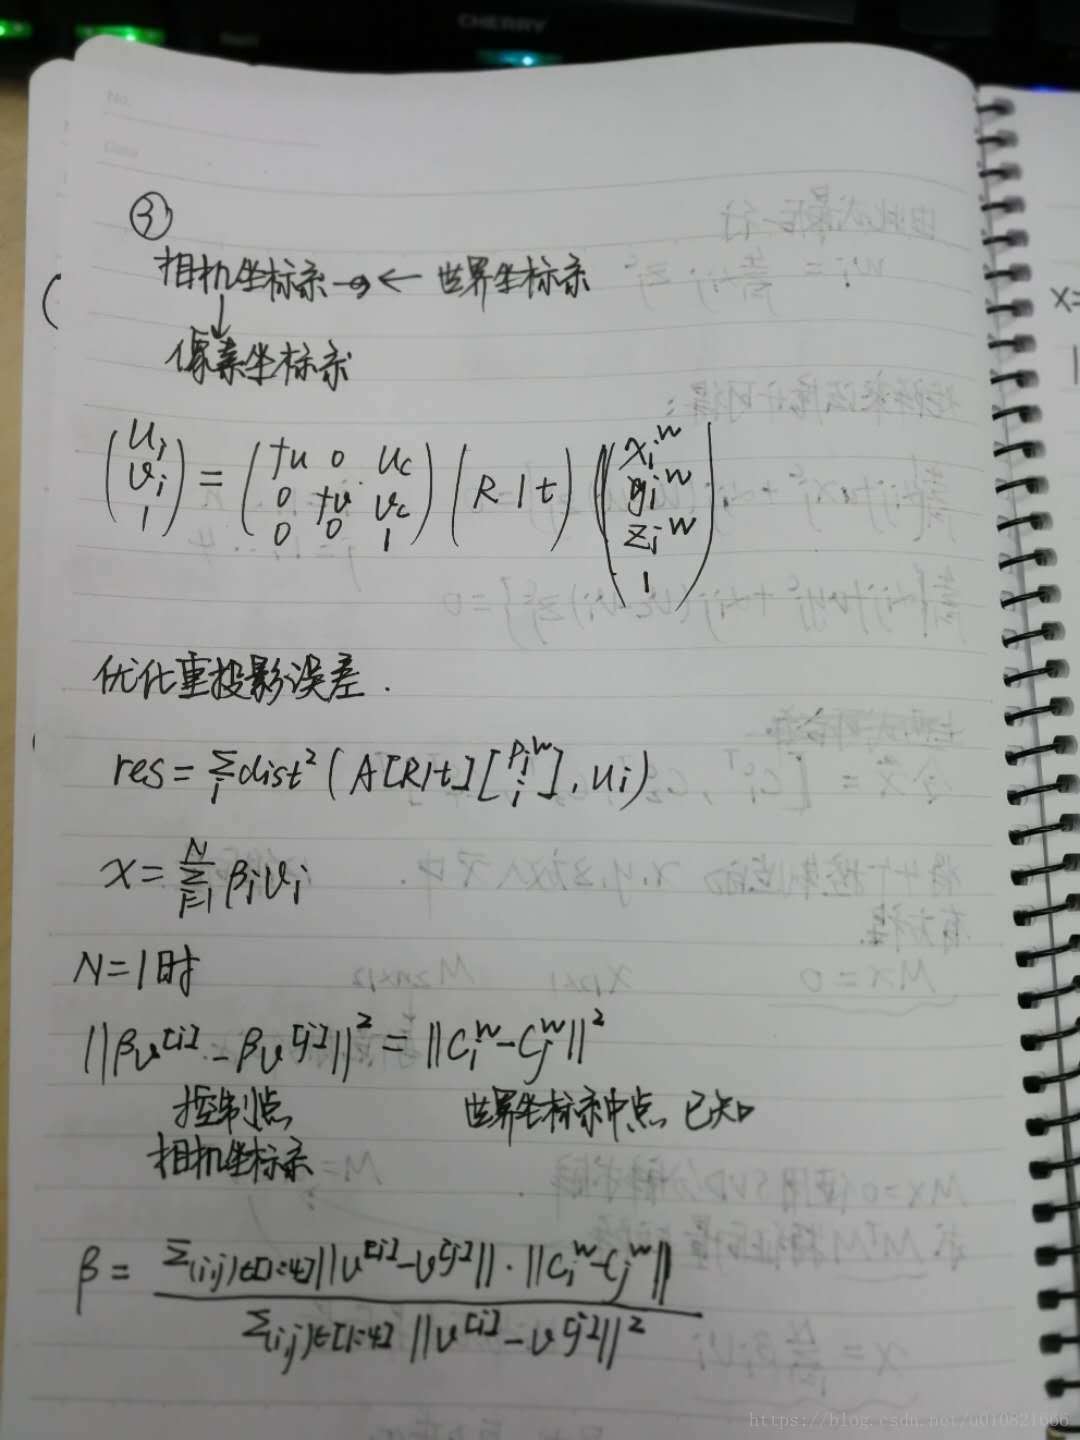 CHERRY
No.
Date
③
相机坐标系 → ← 世界坐标系
↓
像素坐标系
(u_i v_i 1) = (fu 0 u_c; 0 fv v_c; 0 0 1) (R | t) (x_i^w y_i^w z_i^w 1)
优化重投影误差.
res = Σ_i dist² (A[R|t] [p_i^w; 1], u_i)
x = Σ_{i=1}^N β_i v_i
N=1时
||βv^[i] - βv^[j]||² = ||C_i^w - C_j^w||²
控制点 世界坐标系中点 已知
相机坐标系
β = Σ_(i,j)∈[1:4] ||v^[i] - v^[j]|| · ||C_i^w - C_j^w||
Σ_(i,j)∈[1:4] ||v^[i] - v^[j]||²
https://blog.csdn.net/u010821666